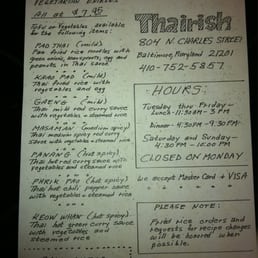 VEGETARIAN ENTREES
All at $7.95
Tofu or Vegetables available
for the following items:
PAD THAI (mild)
Pan fried rice noodles with
green onions, beansprouts, egg and
peanuts in Thai sauce
KHAO PAD (mild)
Thai fried rice with
vegetables and egg
GAENG (mild)
Thai mild red curry sauce
with vegetables + steamed rice
MASAMAN (medium spicy)
Thai medium spicy red curry
sauce with vegetables + steamed rice
PANANG (hot spicy)
Thai hot red curry sauce with
vegetables + steamed rice
PHRIK PAO (hot spicy)
Thai hot chili pepper sauce
with vegetables + steamed rice
KEOW WHAN (hot spicy)
Thai hot green curry sauce
with vegetables and
steamed rice
Thairish
804 N. CHARLES STREET
Baltimore, Maryland 21201
410-752-5857
HOURS:
Tuesday thru Friday-
Lunch-11:30AM-3PM
Dinner-4:30PM-9:30PM
Saturday and Sunday-
4:30PM-10:00PM
CLOSED ON MONDAY
We accept Master Card + VISA
PLEASE NOTE:
Fried rice orders and
requests for recipe changes
will be honored when
possible.